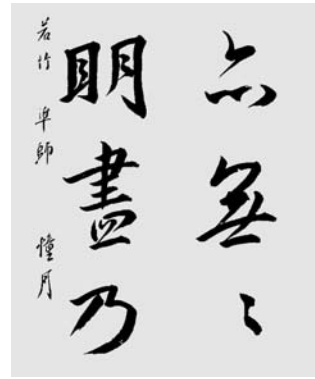 亦無〻
明盡乃
若竹 師 憧月